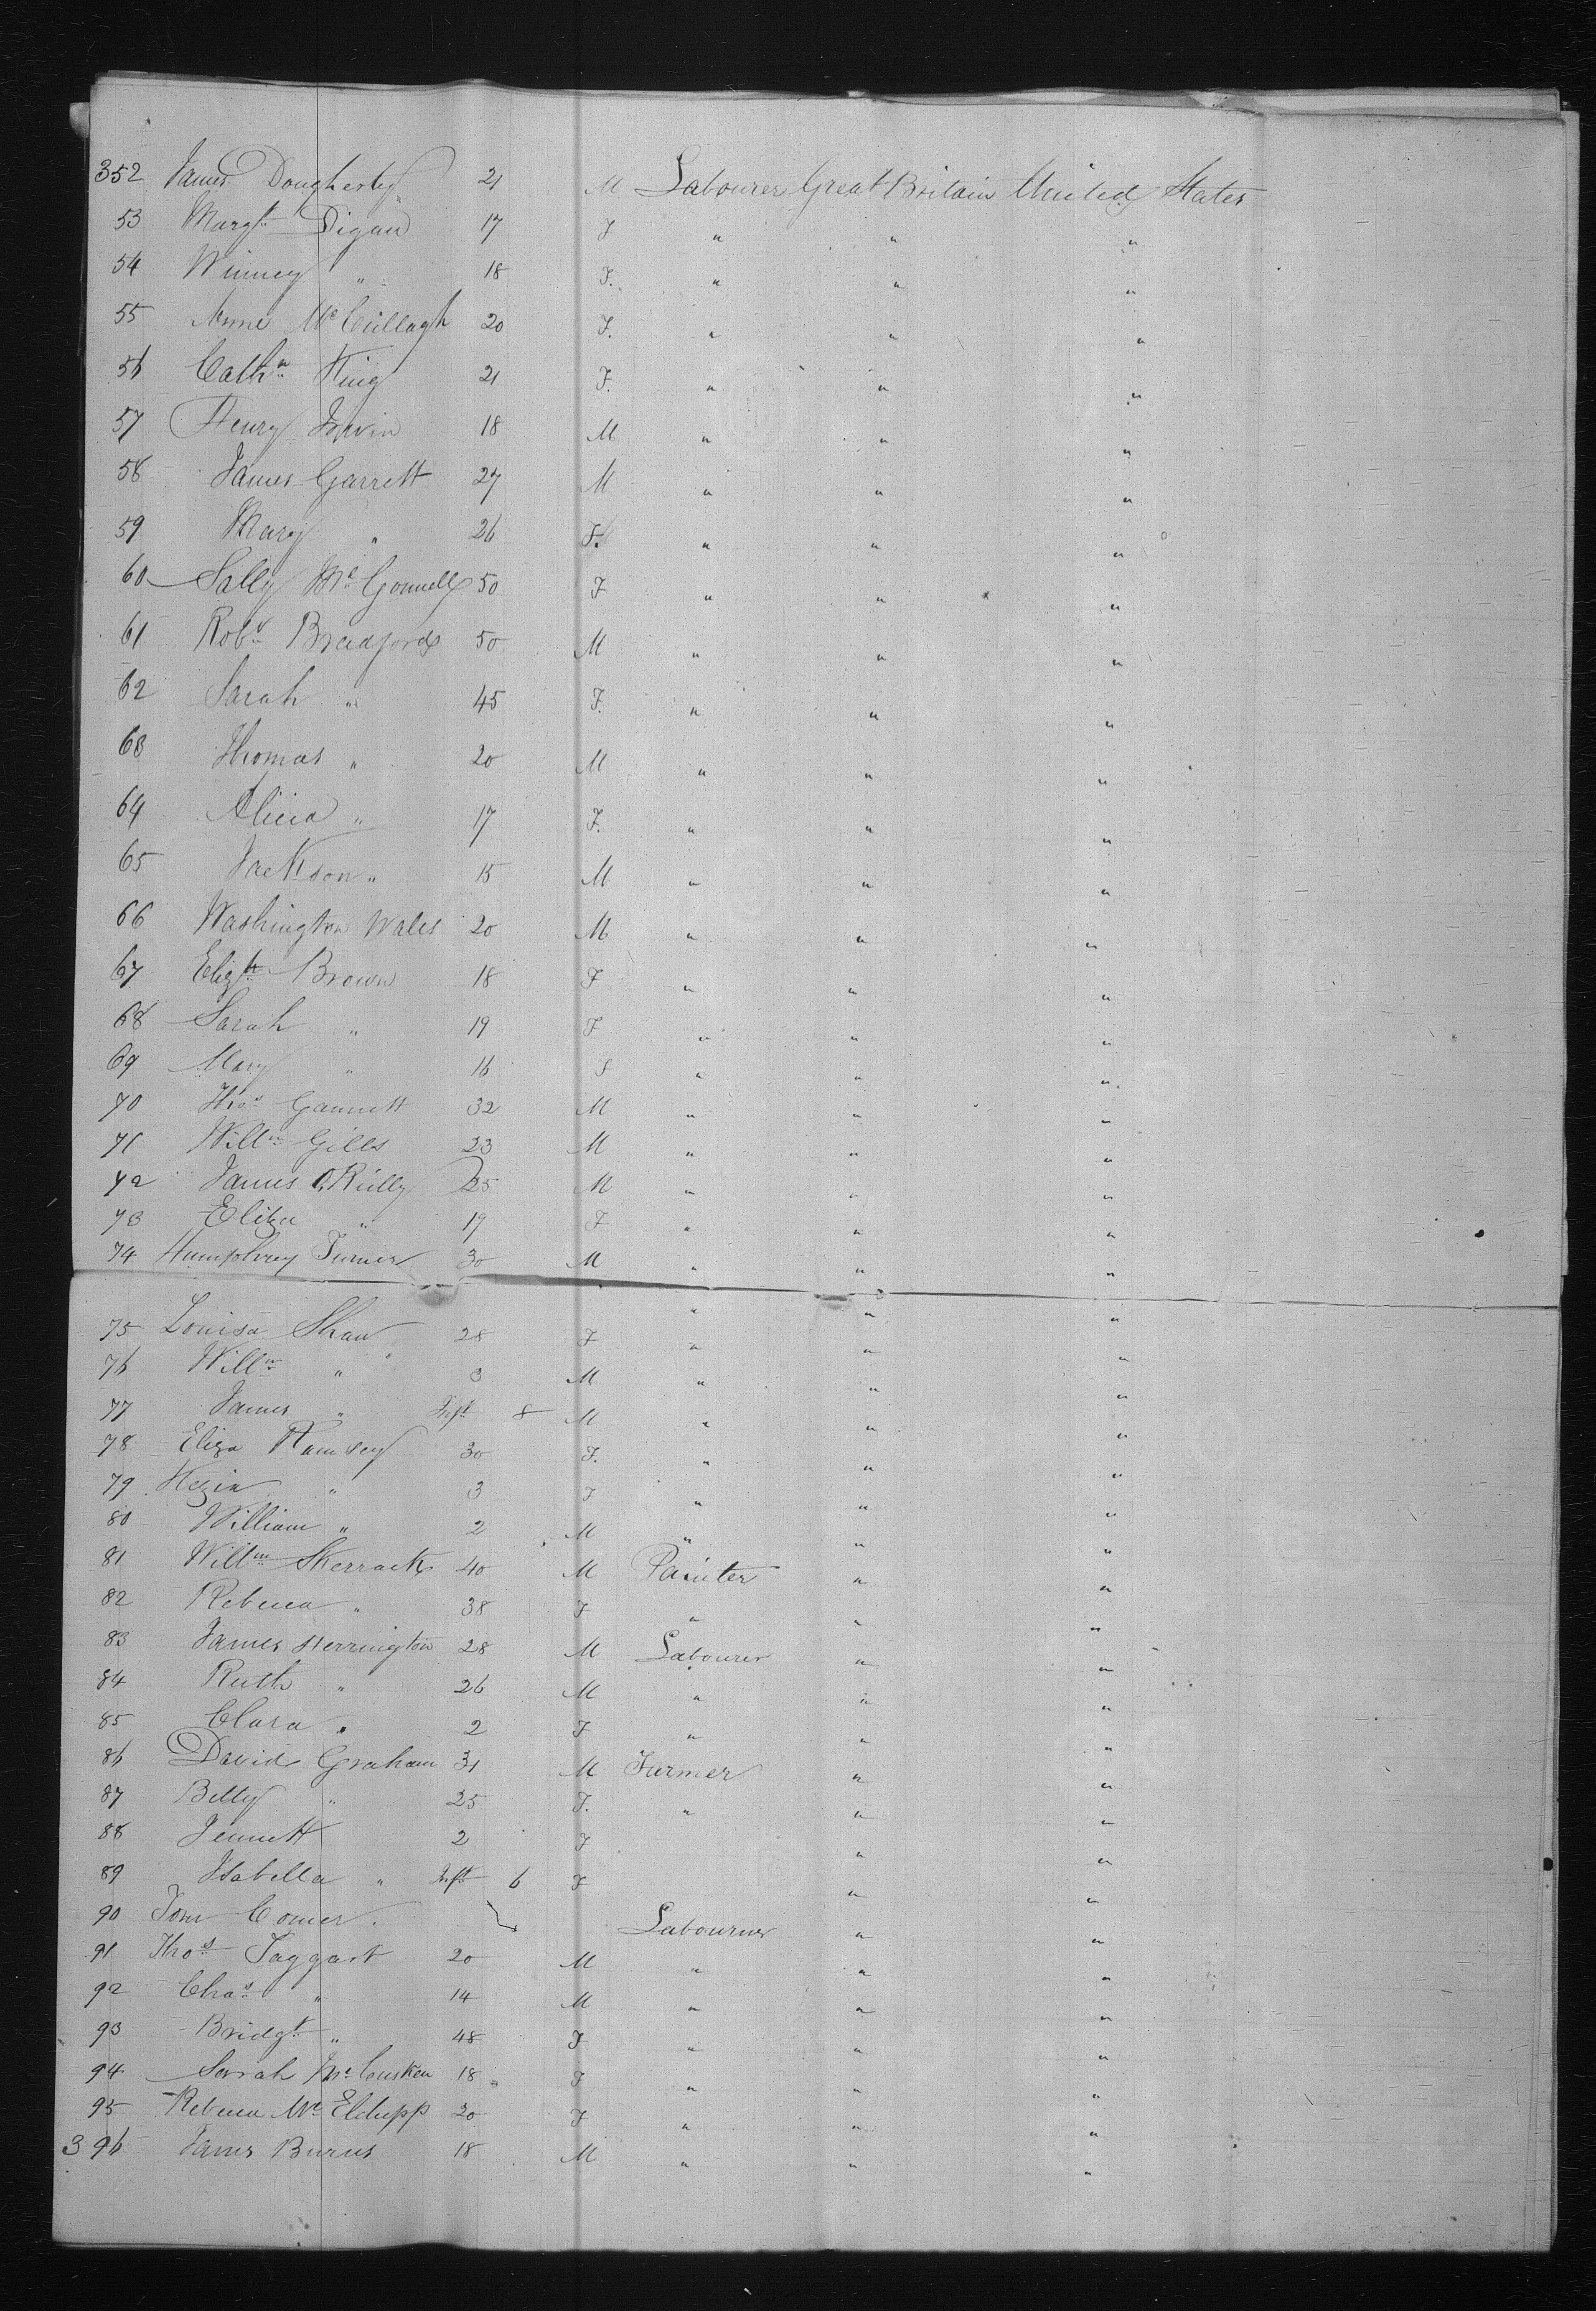 352 James Dougherty 21 M Labourer Great Britain United States
53 Margt Digan 17 F " " "
54 Winney " 18 F. " " "
55 Anne McCullagh 20 F. " " "
56 Cathn King 21 F. " " "
57 Henry Irwin 18 M " " "
58 James Garrett 27 M " " "
59 Mary " 26 F. " " "
60 Sally McGonnell 50 F " " "
61 Robt Bradford 50 M " " "
62 Sarah " 45 F. " " "
63 Thomas " 20 M " " "
64 Alicia " 17 F. " " "
65 Jackson " 15 M " " "
66 Washington Wales 20 M " " "
67 Elizth Brown 18 F " " "
68 Sarah " 19 F " " "
69 Mary " 16 F " " "
70 Thos Gannett 32 M " " "
71 Willm Gills 23 M " " "
72 James O,Rielly 25 M " " "
73 Eliza " 19 F " " "
74 Humphrey Turner 30 M " " "
75 Louisa Shaw 28 F " " "
76 Willm " 3 M " " "
77 James " Inft 8 M " " "
78 Eliza Ramsey 30 F. " " "
79 " 3 F " " "
80 William " 2 M " " "
81 Willm Sherrack 40 M Painter " "
82 Rebecca " 38 F " " "
83 James Herrington 28 M Labourer " "
84 Ruth " 26 M " " "
85 Clara " 2 F " " "
86 David Graham 31 M Farmer " "
87 Betty " 25 F. " " "
88 Jennett 2 F " "
89 Isabella " Inft 6 F " "
90 Tom Comer. Labourer " "
91 Thos Taggart 20 M " " "
92 Chas " 14 M " " "
93 Bridgt " 48 F " " "
94 Sarah McCusken 18 F " " "
95 Rebecca Mc 20 F " " "
396 James Burns 18 M " " "